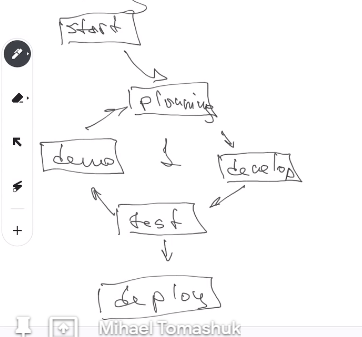 start
planning
demo 1 develop
test
deploy
Mihael Tomashuk